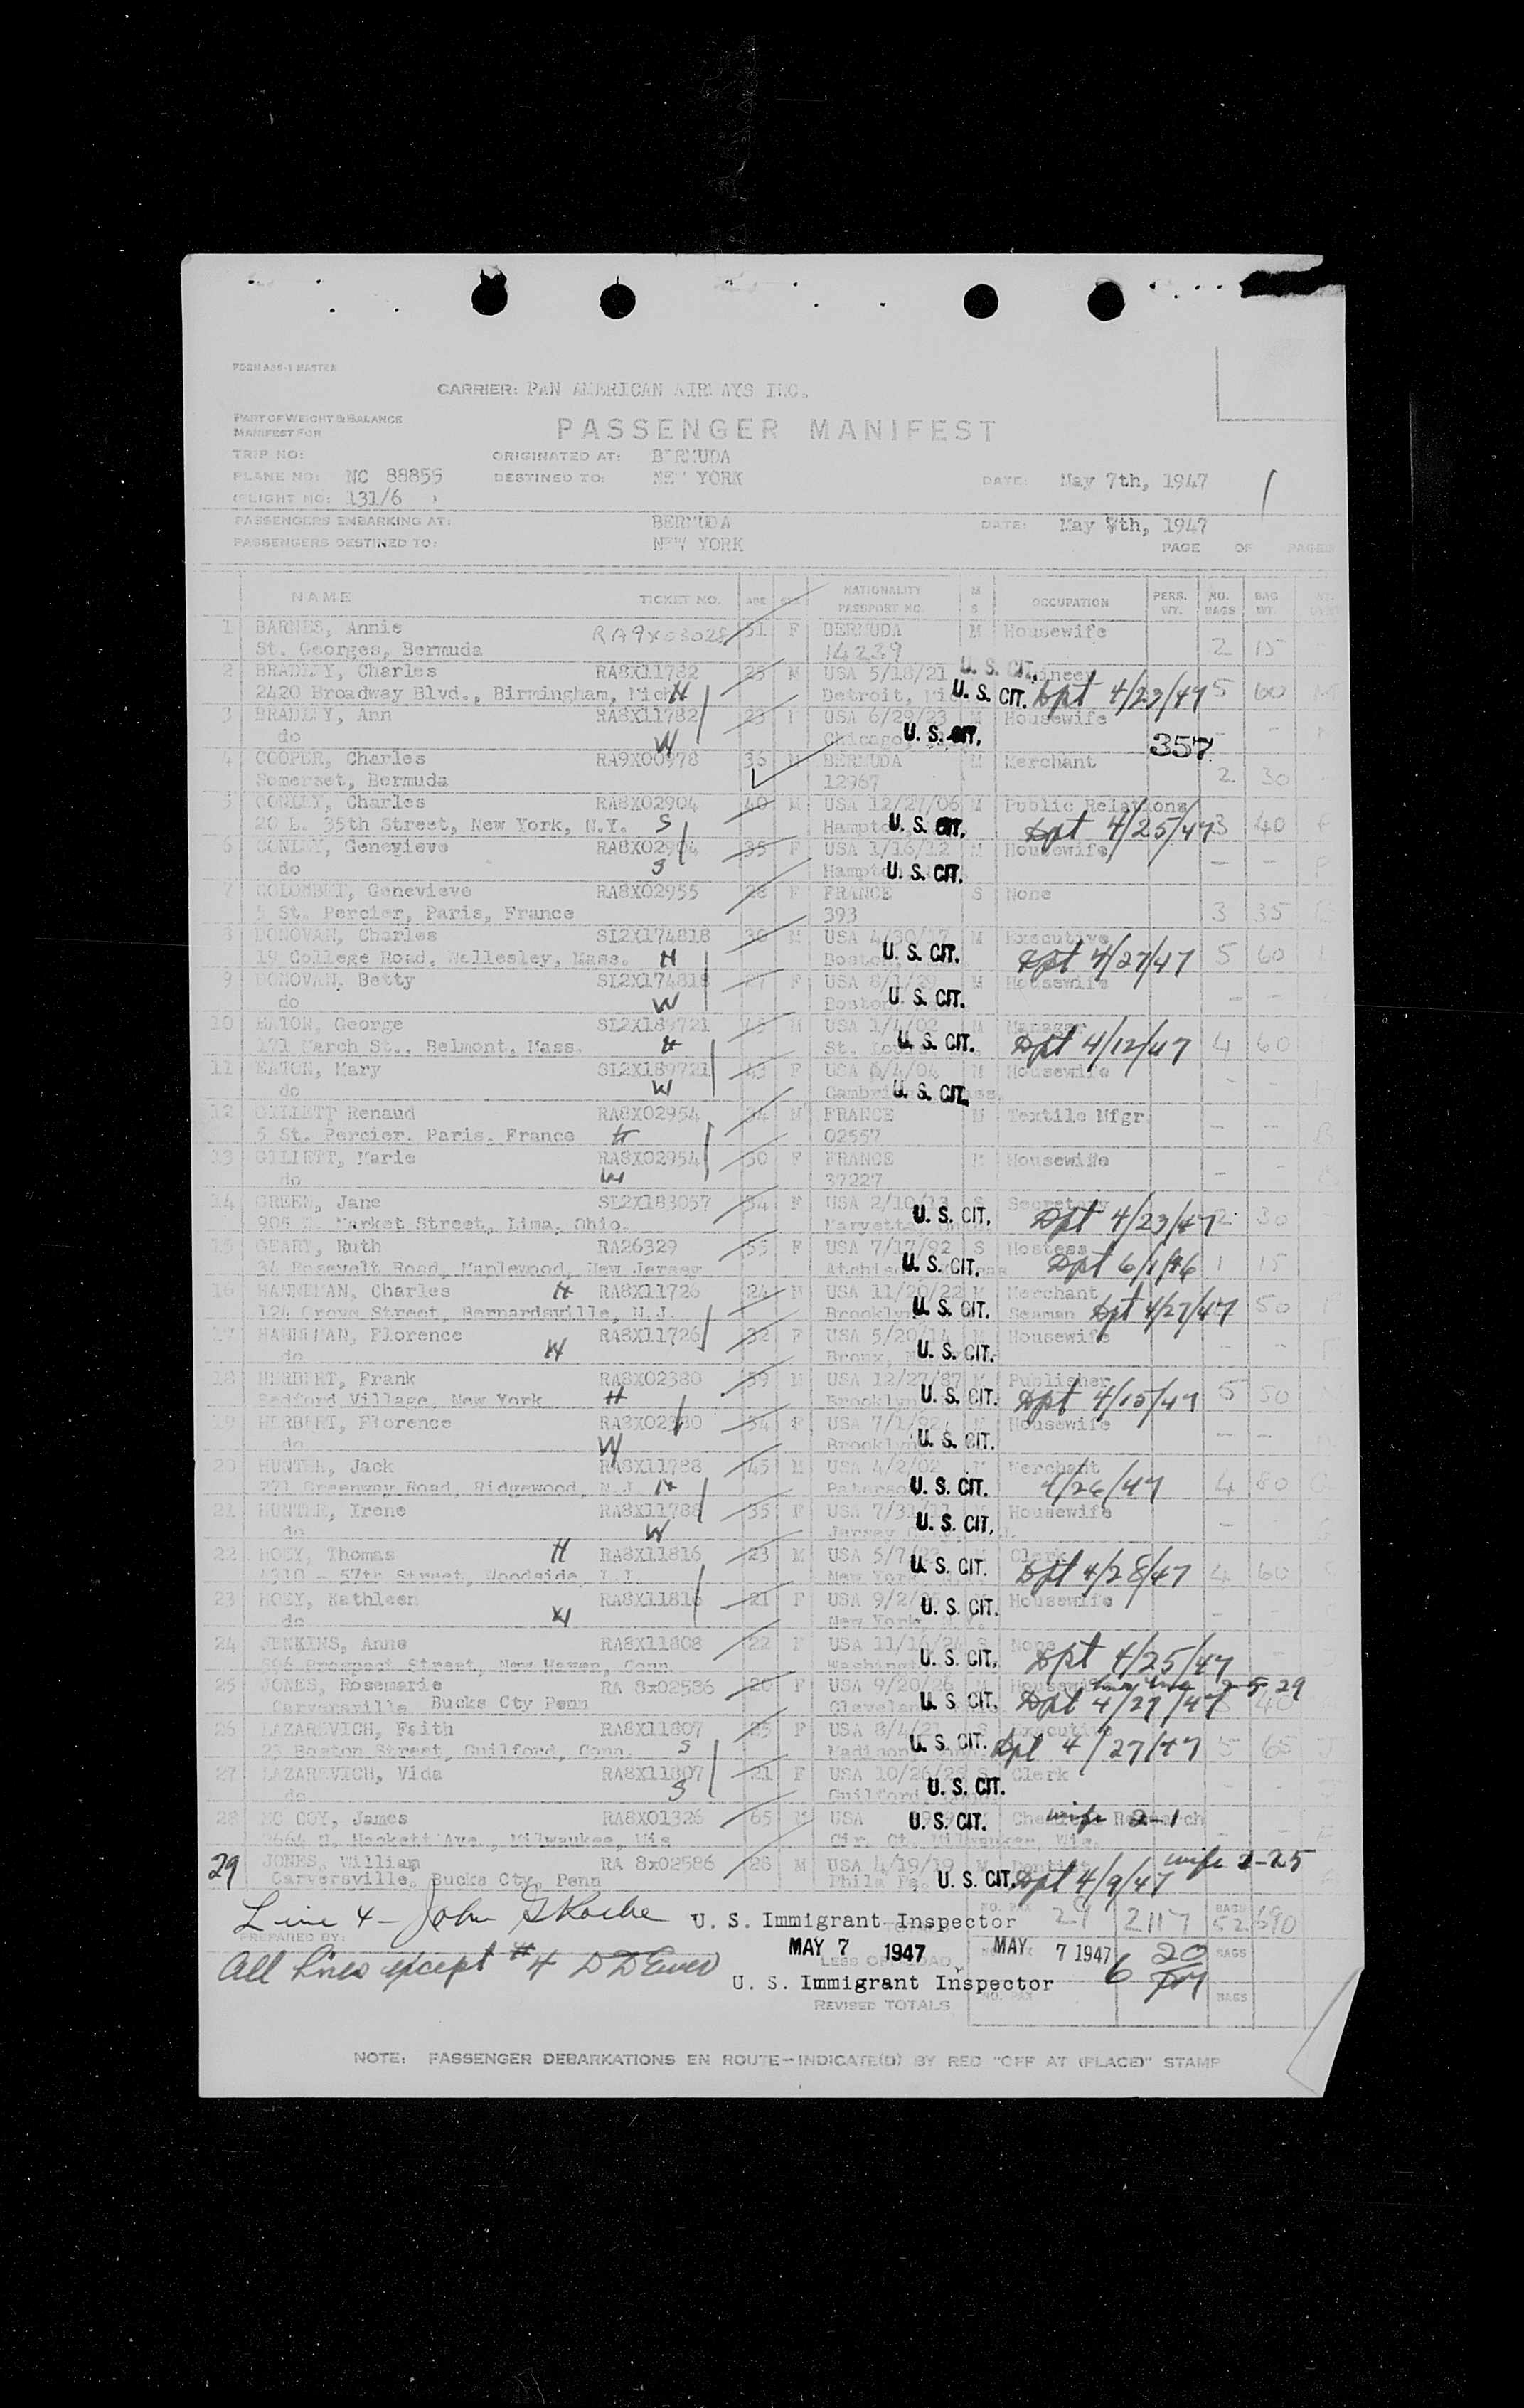 FORM A86-1 MASTER
CARRIER: PAN AMERICAN AIRWAYS INC.
PART OF WEIGHT & BALANCE
MANIFEST FOR
PASSENGER MANIFEST
TRIP NO: ORIGINATED AT: BERMUDA
PLANE NO: NC 88855 DESTINED TO: NEW YORK DATE: May 7th, 1947
(FLIGHT NO: 131/6 )
PASSENGERS EMBARKING AT: BERMUDA DATE: May 7th, 1947
PASSENGERS DESTINED TO: NEW YORK PAGE OF PAGES
NAME TICKET NO. AGE SEX NATIONALITY PASSPORT NO. M S OCCUPATION PERS. WT. NO. BAGS BAG WT.
1 BARNES, Annie RA9X03028 51 F BERMUDA M Housewife
St. Georges, Bermuda 14239 2 15
2 BRADLEY, Charles RA8X11782 25 M USA 5/18/21 U. S. CIT.
2420 Broadway Blvd., Birmingham, Mich H Detroit, U. S. CIT. Dpt 4/23/47 5 60
3 BRADLEY, Ann RA8X11782 23 F USA 6/29/23 M Housewife
do W Chicago U. S. CIT. 357
4 COOPER, Charles RA9X00978 36 M BERMUDA M Merchant
Somerset, Bermuda 12967 2 30
5 CONLEY, Charles RA8X02904 40 M USA 12/27/06 M Public Relations
20 E. 35th Street, New York, N.Y. S U. S. CIT. Dpt 4/25/47 3 40
6 CONLEY, Genevieve RA8X02904 35 F USA 1/16/12 M Housewife
do S U. S. CIT. - -
7 COLOMBET, Genevieve RA8X02955 28 F FRANCE S None
5 St. Percier, Paris, France 393 3 35
8 DONOVAN, Charles SL2X174818 30 M USA 4/30/17 M Executive
19 College Road, Wellesley, Mass. H Boston U. S. CIT. Dpt 4/27/47 5 60
9 DONOVAN, Betty SL2X174818 27 F USA M Housewife
do W Boston U. S. CIT. - -
10 EATON, George SL2X189721 45 M USA 1/4/02 M Manager
171 March St., Belmont, Mass. H U. S. CIT. Dpt 4/12/47 4 60
11 EATON, Mary SL2X189721 43 F USA 6/4/04 M Housewife
do W U. S. CIT. - -
12 GILLETT Renaud RA8X02954 34 M FRANCE M Textile Mfgr.
5 St. Percier, Paris, France H 02557 - -
13 GILLETT, Marie RA8X02954 30 F FRANCE M Housewife
do W 37227 - -
14 GREEN, Jane SL2X183057 34 F USA 2/10/13 S Secretary
Market Street, Lima, Ohio. U. S. CIT. Dpt 4/23/47 2 30
15 GEARY, Ruth RA26329 55 F USA 7/17/92 S Hostess
34 Rosevelt Road, Maplewood, New Jersey U. S. CIT. Dpt 6/1/46 1 15
16 HANNEMAN, Charles H RA8X11726 24 M USA 11/20/22 M Merchant
124 Grove Street, Bernardsville, N.J. Brooklyn U. S. CIT. Seaman Dpt 4/27/47 50
17 HANNEMAN, Florence RA8X11726 32 F USA 5/20/14 M Housewife
do W Bronx, U. S. CIT. - -
18 HERBERT, Frank RA8X02380 59 M USA 12/27/87 M Publisher
Bedford Village, New York H Brooklyn U. S. CIT. Dpt 4/15/47 5 50
19 HERBERT, Florence RA8X02380 54 F USA 7/1/92 M Housewife
do W Brooklyn U. S. CIT. - -
20 HUNTER, Jack RA8X11788 45 M USA 4/2/02 M Merchant
271 Greenway Road, Ridgewood, N.J. H U. S. CIT. 4/26/47 4 80
21 HUNTER, Irene RA8X11788 35 F USA M Housewife
do W Jersey U. S. CIT. -
22 HOEY, Thomas H RA8X11816 23 M USA 5/7/23 Clerk
4310 - 57th Street, Woodside, L.I. New York U. S. CIT. Dpt 4/28/47 4 60
23 HOEY, Kathleen RA8X11816 21 F USA Housewife
do W New York U. S. CIT. - -
24 JENKINS, Anne RA8X11808 22 F USA 11/14/24 S None
Prospect Street, New Haven, Conn U. S. CIT. Dpt 4/25/47
25 JONES, Rosemarie RA 8x02586 20 F USA 9/20/26 M Housewife 29
Carversville Bucks Cty Penn U. S. CIT. Dpt 4/27/47 40
26 LAZAREVICH, Faith RA8X11807 25 F USA 8/4/21 S Executive
23 Boston Street, Guilford, Conn. S Madison U. S. CIT. Dpt 4/27/47 5 65
27 LAZAREVICH, Vida RA8X11807 21 F USA 10/26/25 S Clerk
do S Guilford U. S. CIT. - -
28 MC COY, James RA8X01326 65 M USA U. S. CIT. Research wife 2-1
2664 N. Hackett Ave., Milwaukee, Wis Cir. Ct. Milwaukee, Wis.
29 JONES, William RA 8x02586 28 M USA 4/19/19 M Dentist wife 2-25
Carversville, Bucks Cty, Penn Phila Pa. U. S. CIT. Dpt 4/9/47
Line 4 - John U. S. Immigrant Inspector NO. PAX 29 2117 BAGS 52 690
PREPARED BY:
MAY 7 1947 MAY 7 1947 6 20 PM BAGS
All lines except #4 LESS OFFLOAD
U. S. Immigrant Inspector
REVISED TOTALS NO. PAX BAGS
NOTE: PASSENGER DEBARKATIONS EN ROUTE—INDICATE(D) BY RED "OFF AT (PLACE)" STAMP